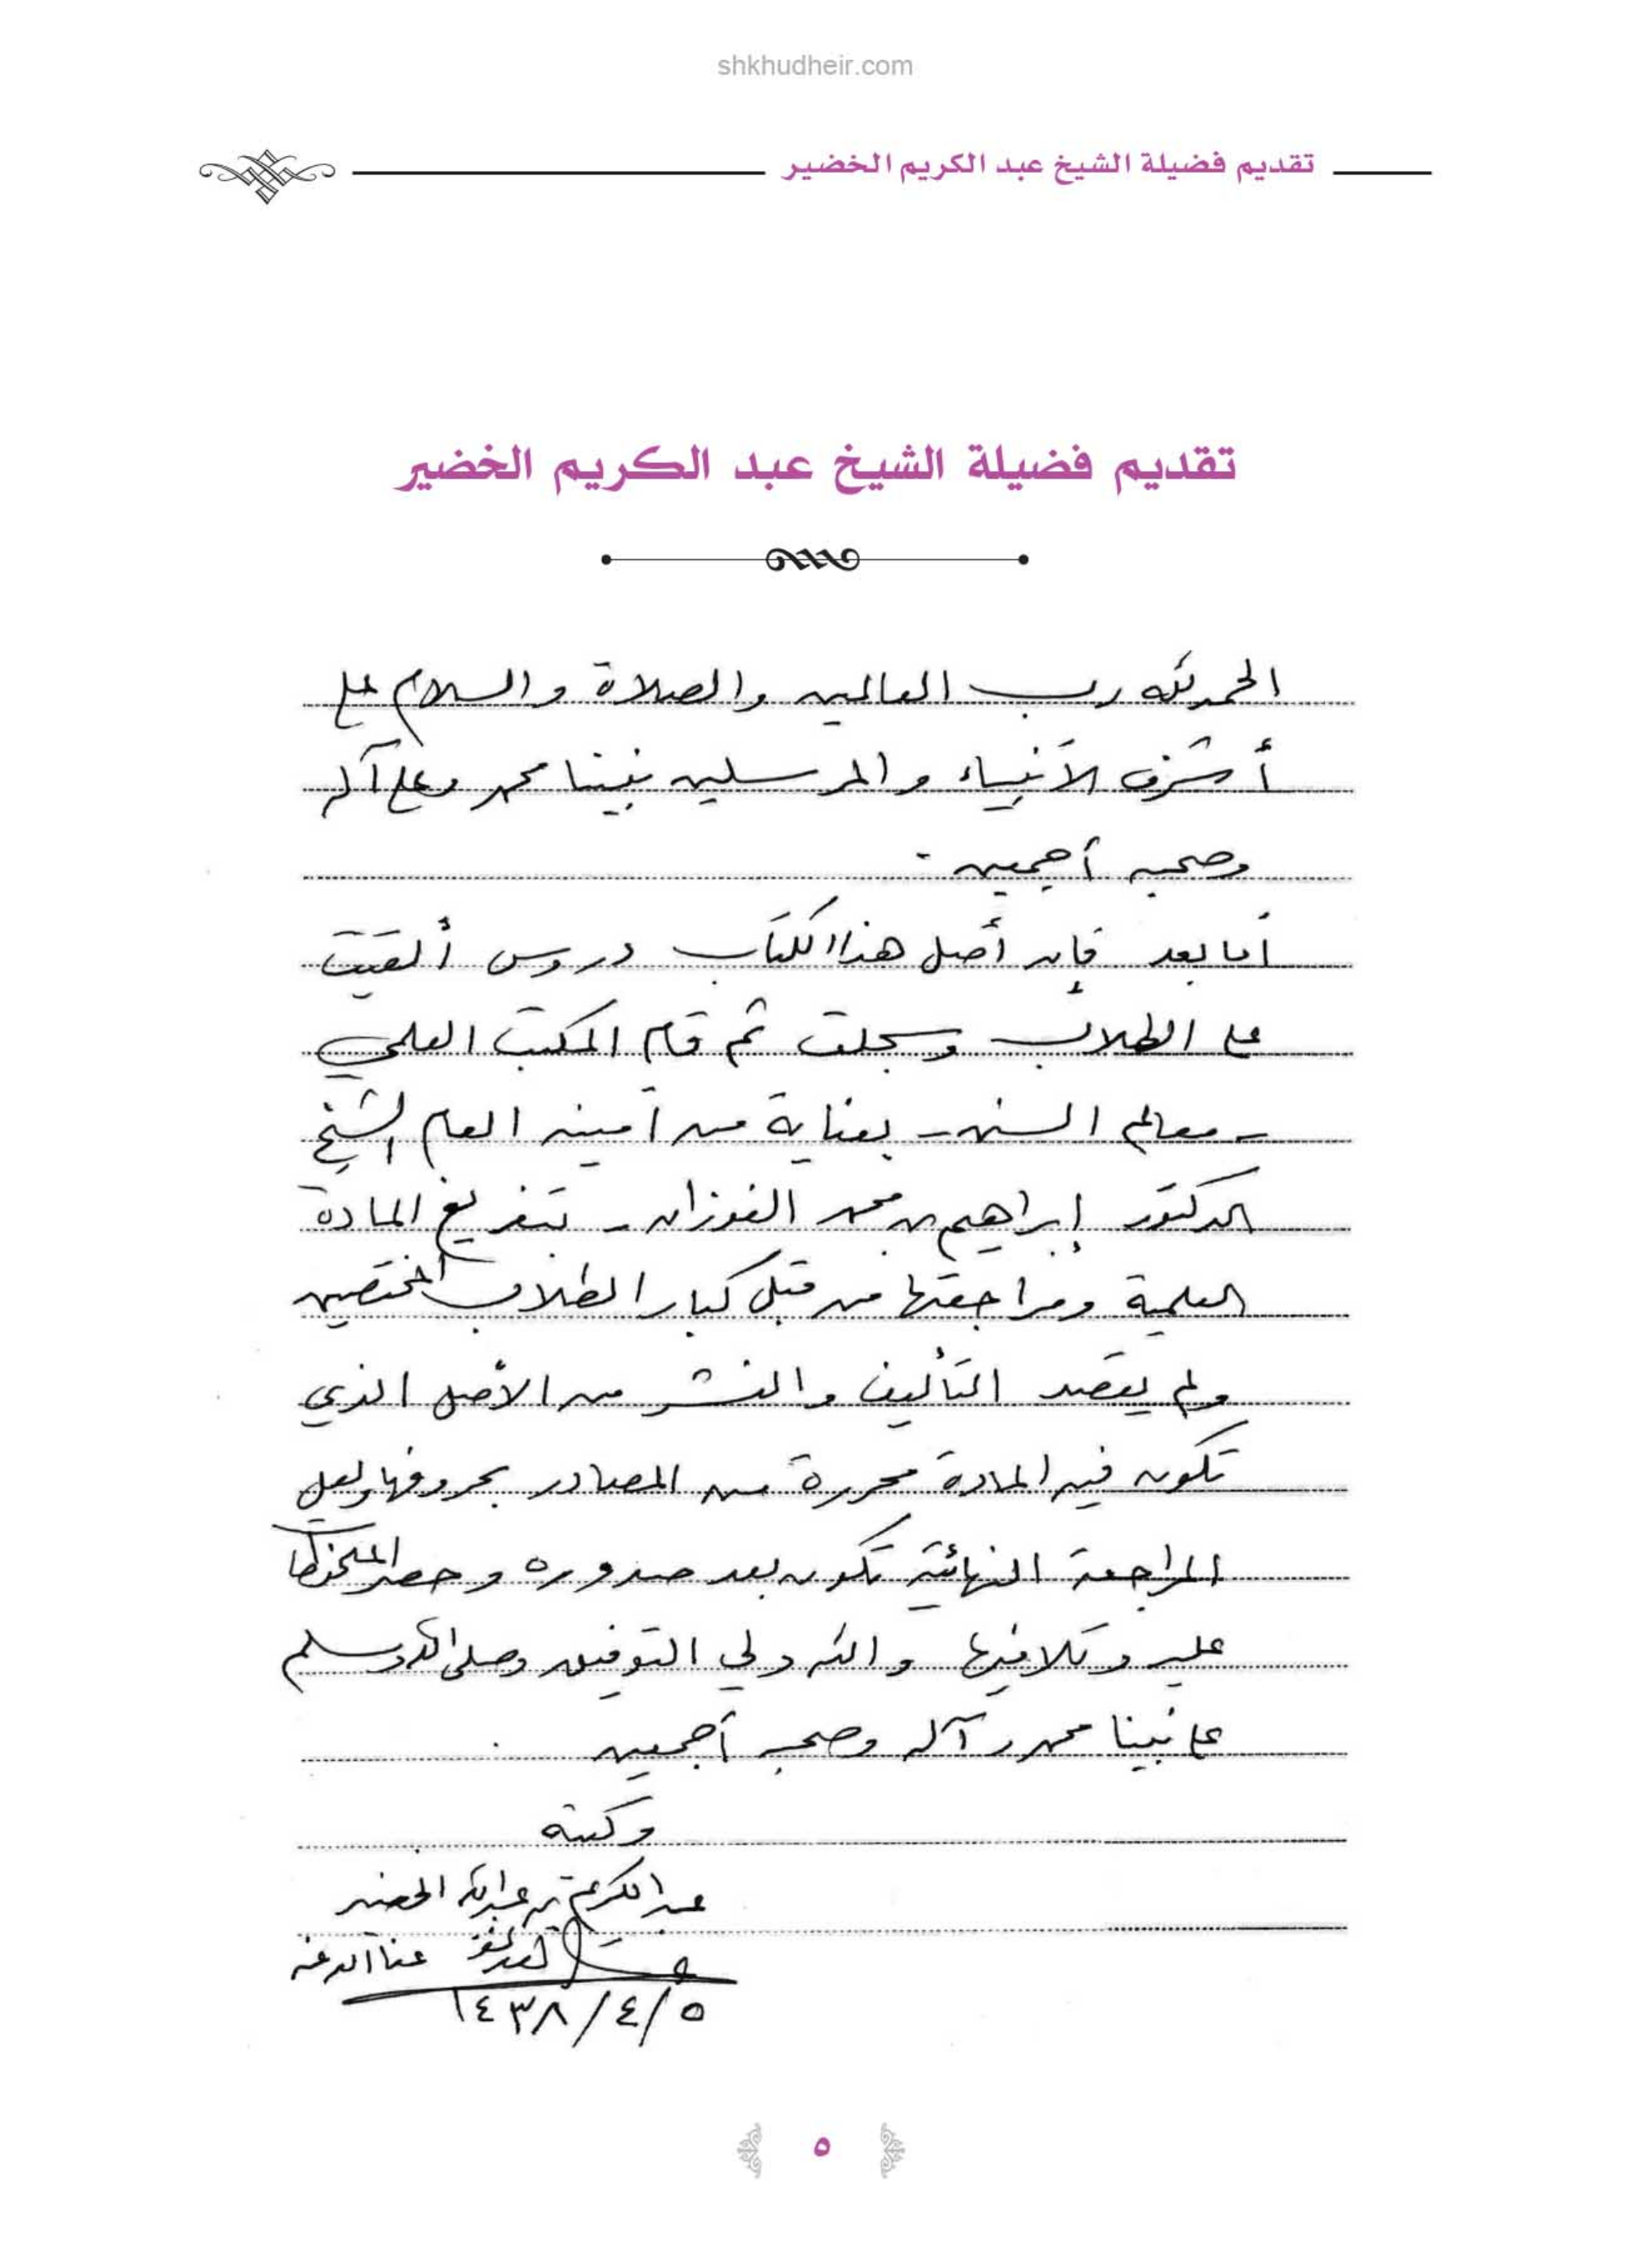 shkhudheir.com
تقديم فضيلة الشيخ عبد الكريم الخضير
تقديم فضيلة الشيخ عبد الكريم الخضير
الحمد لله رب العالمين والصلاة والسلام على
أشرف الأنبياء والمرسلين نبينا محمد وعلى آله
وصحبه أجمعين .
أما بعد فإن أصل هذا الكتاب دروس ألقيت
على الطلاب وسجلت ثم قام المكتب العلمي
- معالم السنن - بعناية من أمينه العام الشيخ
الدكتور إبراهيم بن محمد الفوزان - بتفريغ المادة
العلمية ومراجعتها من قبل كبار الطلاب المختصين
ولم يقصد التأليف والنشر من الأصل الذي
تكون فيه المادة محررة من المصادر بحروفها ولعل
المراجعة النهائية تكون بعد صدوره وحصر
عليه وتلافيها والله ولي التوفيق وصلى الله وسلم
على نبينا محمد وآله وصحبه أجمعين .
وكتبه
عبد الكريم بن عبد الله الخضير
عفا الله عنه
١٤٣٨/٤/٥
٥